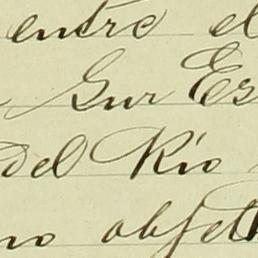 entre el
Sur Es
del Rio
no objet